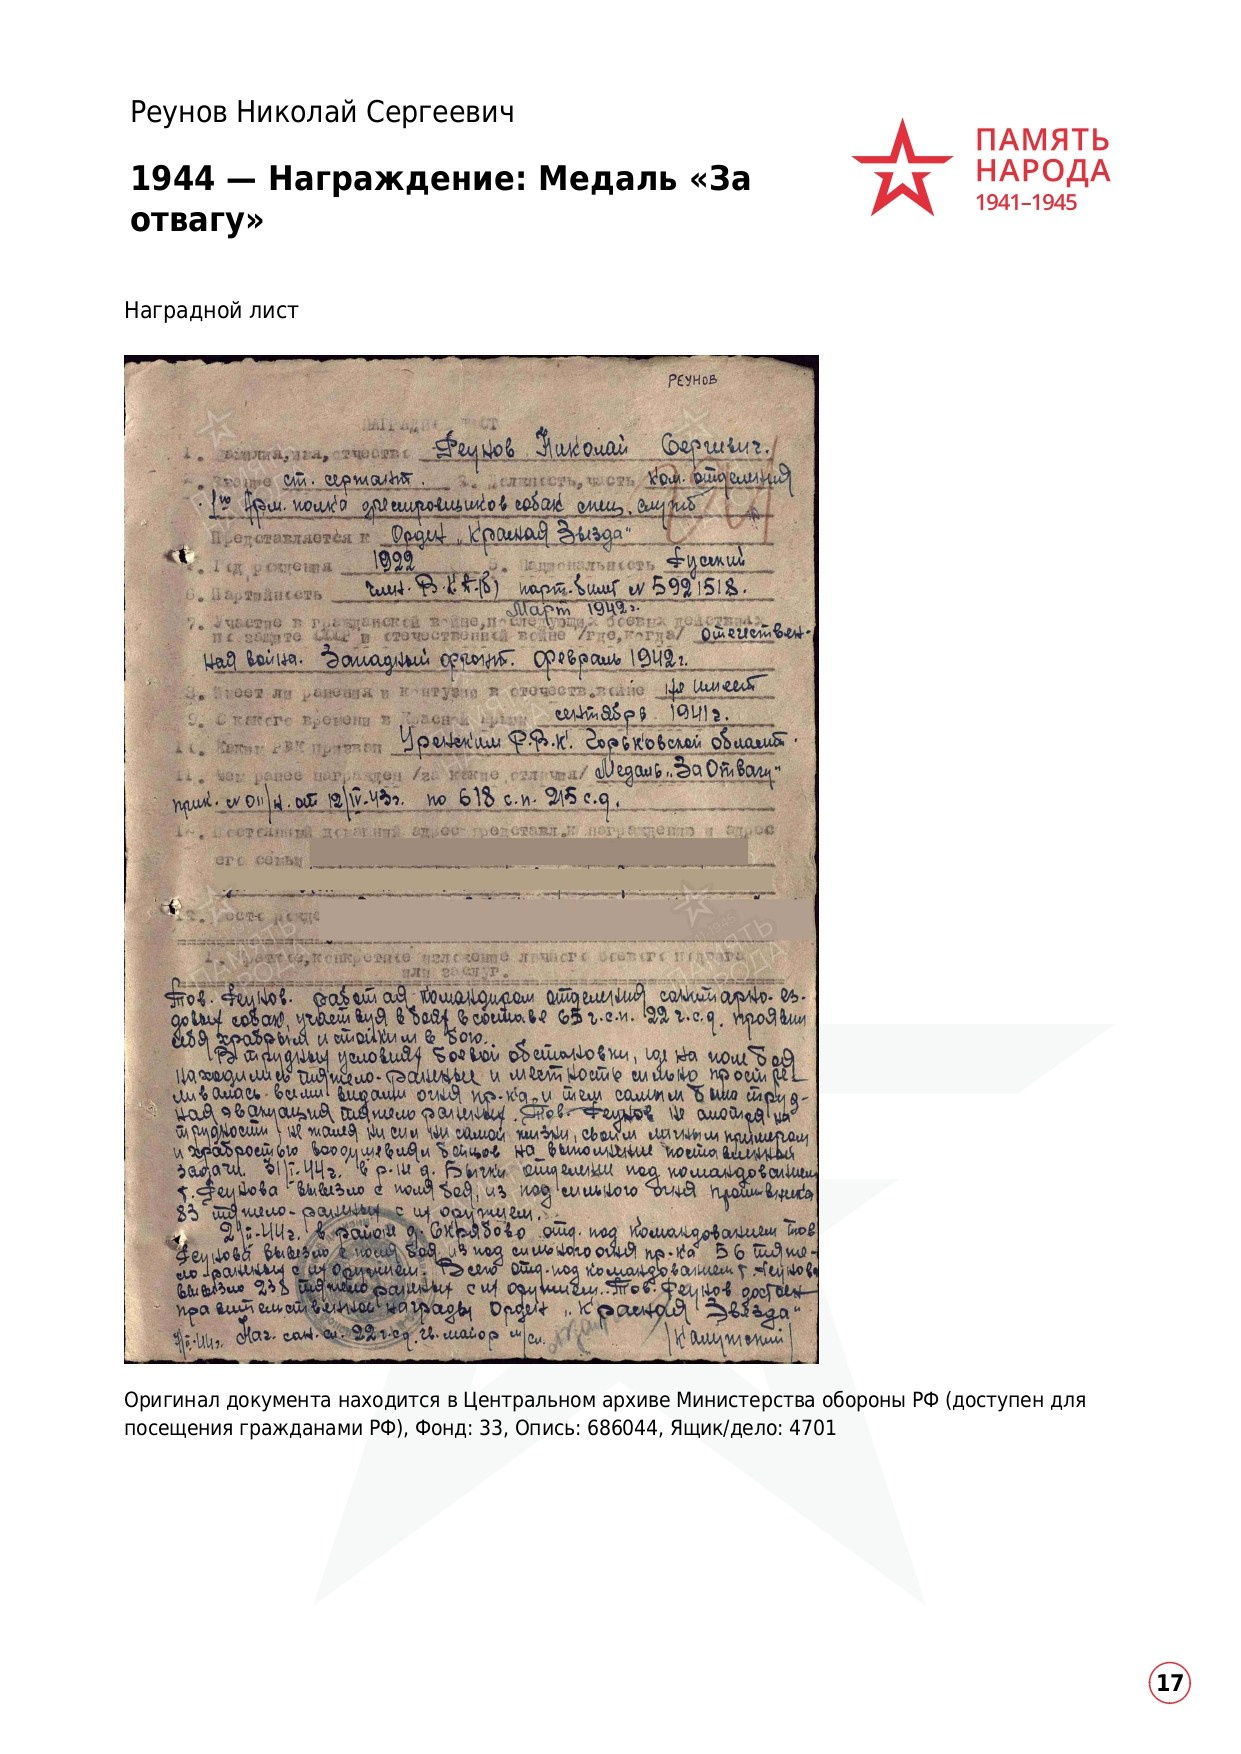 Реунов Николай Сергеевич
1944 — Награждение: Медаль «За
отвагу»
ПАМЯТЬ
НАРОДА
1941–1945
Наградной лист
РЕУНОВ
НАГРАДНОЙ ЛИСТ
1. Фамилия, имя, отчество Реунов Николай Сергиевич.
2. Звание ст. сержант. 3. Должность, часть ком. отделения
1го Арм. полка дрессировщиков собак спец. служб
Представляется к Орден „Красная Звезда"
4. Год рождения 1922 5. Национальность русский
6. Партийность член. В.К.П.(б) парт. билет № 5921518.
Март 1942г.
7. Участие в гражданской войне, последующих боевых действиях
по защите СССР и отечественной войне /где, когда/ отечествен-
ная война. Западный фронт. Февраль 1942г.
8. Имеет ли ранения и контузии в отечеств. войне не имеет
9. С какого времени в Красной армии сентябрь 1941г.
10. Каким РВК призван Уренским Р.В.К. Горьковской области.
11. Чем ранее награжден /за какие отличия/ Медаль „За Отвагу"
прик. № 011/н. от 12/IV-43г. по 618 с.п. 215 с.д.
12. Постоянный домашний адрес представл. к награждению и адрес
его семьи
1. Краткое, конкретное изложение личного боевого подвига
или заслуг.
Тов. Реунов. работая командиром отделения санитарно-ез-
довых собак, участвуя в боях в составе 65 г.с.п. 22 г.с.д. проявил
себя храбрым и стойким в бою.
В трудных условиях боевой обстановки, где на поле боя
находились тяжело-раненые и местность сильно простре-
ливалась всеми видами огня пр-ка, и тем самым была труд-
ная эвакуация тяжело раненых. Тов. Реунов не смотря на
трудности, не жалея ни сил ни самой жизни, своим личным примером
и храбростью воодушевлял бойцов на выполнение поставленной
задачи. 31/I-44г. в р-не д. Бычки отделение под командованием
т. Реунова вывезло с поля боя, из под сильного огня противника
83 тяжело-раненых с их оружием.
в район д. Окрябово отд. под командованием тов
Реунова вывезло с поля боя из под сильного огня пр-ка 56 тяже-
ло-раненых с их оружием. Всего отд. под командованием т. Реунова
вывезло 238 тяжело раненых с их оружием. Тов. Реунов достоен
правительственной награды Орден „Красная Звезда"
Нач. сан. сл. 22 г.с.д. гв. майор м/сл. /Калужский/
Оригинал документа находится в Центральном архиве Министерства обороны РФ (доступен для
посещения гражданами РФ), Фонд: 33, Опись: 686044, Ящик/дело: 4701
17